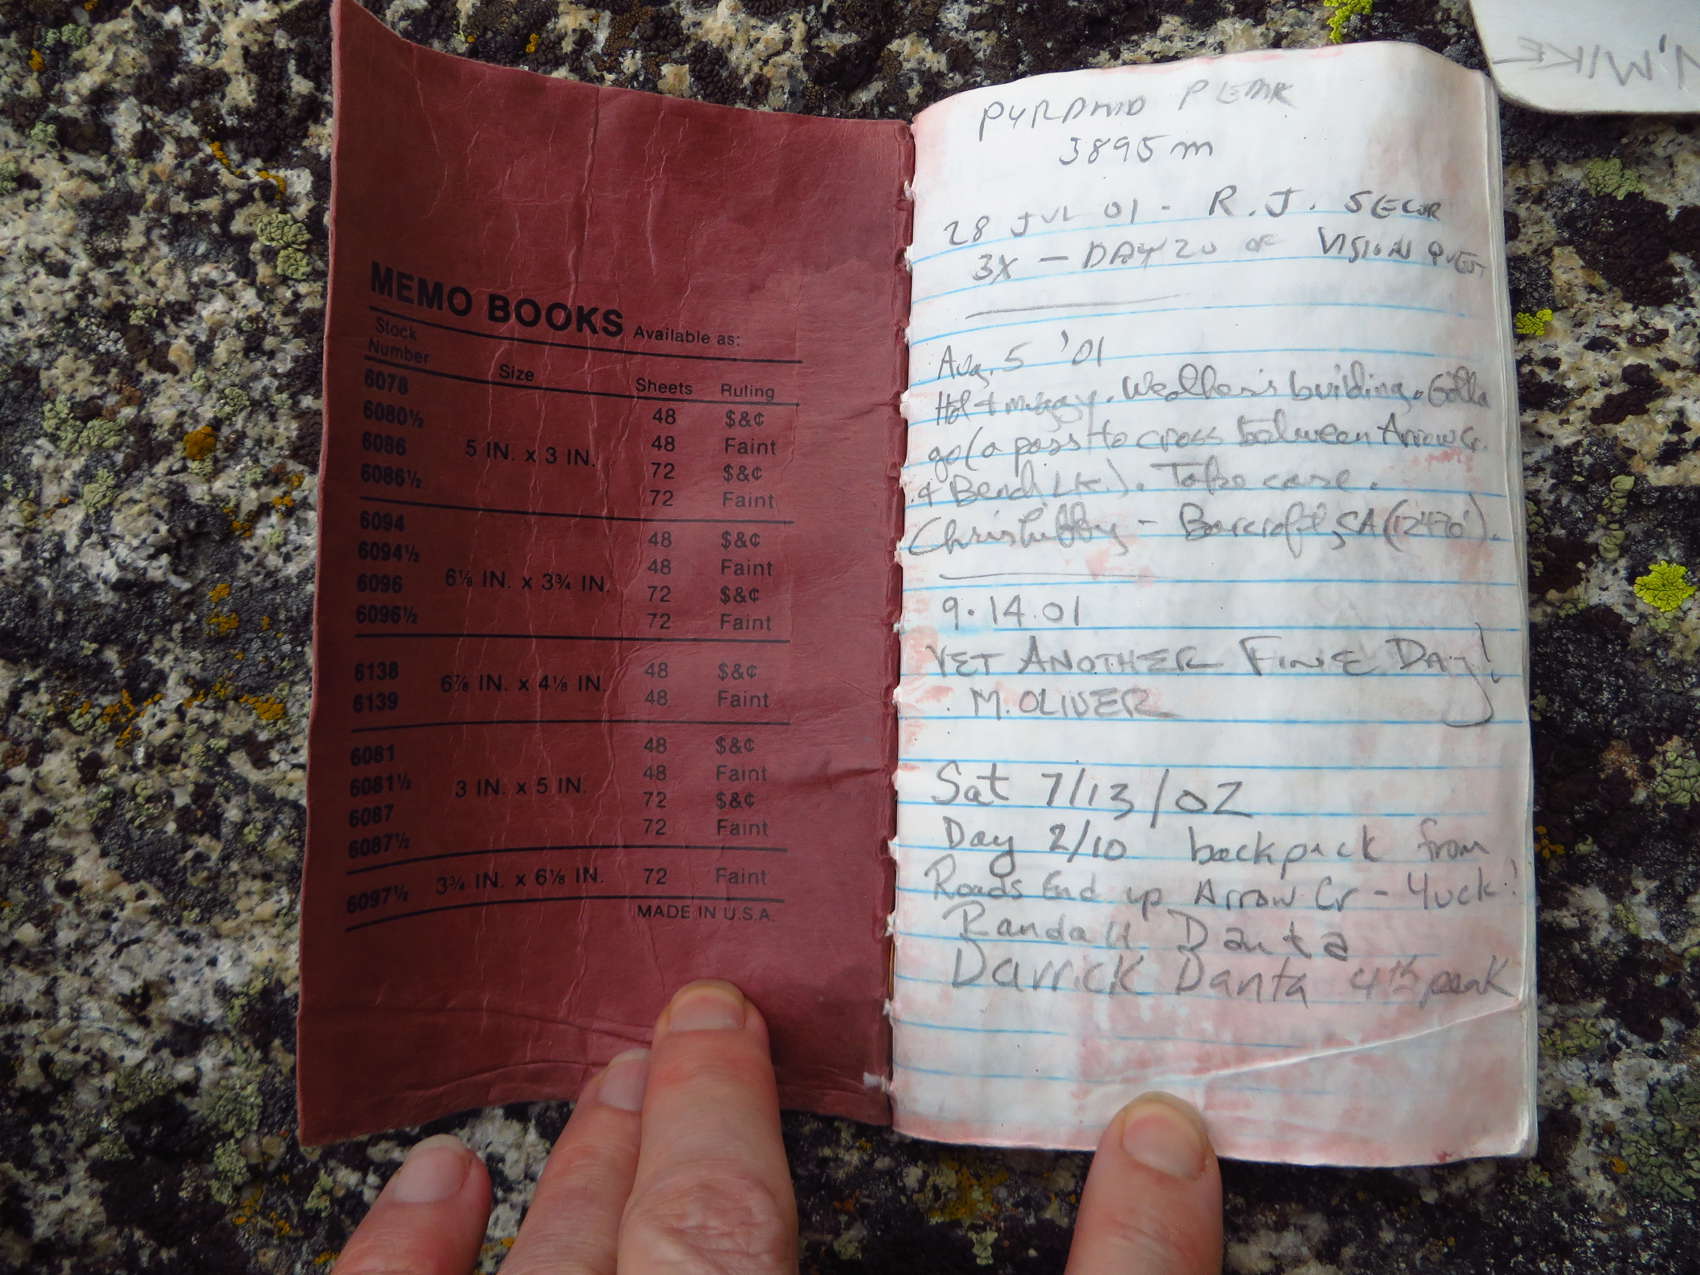 MEMO BOOKS Available as:
Stock Number Size Sheets Ruling
6078 48 $&¢
6080½ 48 Faint
6086 5 IN. x 3 IN. 72 $&¢
6086½ 72 Faint
6094 48 $&¢
6094½ 48 Faint
6096 6⅛ IN. x 3¾ IN. 72 $&¢
6096½ 72 Faint
6138 48 $&¢
6139 6⅞ IN. x 4⅛ IN. 48 Faint
6081 48 $&¢
6081½ 48 Faint
6087 3 IN. x 5 IN. 72 $&¢
6087½ 72 Faint
6097½ 3¾ IN. x 6⅛ IN. 72 Faint
MADE IN U.S.A.
PYRAMID PEAK
3895 m
28 JUL 01 - R.J. SECOR
3X - DAY 20 OF VISION QUEST
Aug. 5 '01
Hot & muggy. Weather is building. Gotta
go (a pass to cross between Arrow Cr.
& Bench Lk.). Take care.
Chris Libby - Barcroft, CA (12470').
9.14.01
YET ANOTHER FINE DAY!
M. OLIVER
Sat 7/13/02
Day 2/10 backpack from
Roads End up Arrow Cr - Yuck!
Randall Danta
Darrick Danta 4th peak
MIKE